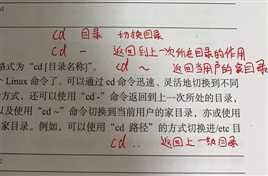 cd 目录 切换目录
cd - 返回到上一次所在目录的作用
格式为“cd [目录名称]”。 cd ~ 返回当用户的家目录
个 Linux 命令了。可以通过 cd 命令迅速、灵活地切换到不同
方式，还可以使用“cd -”命令返回到上一次所处的目录，
以及使用“cd ~”命令切换到当前用户的家目录，亦或使用
家目录。例如，可以使用“cd 路径”的方式切换进/etc 目
cd .. 返回上一级目录